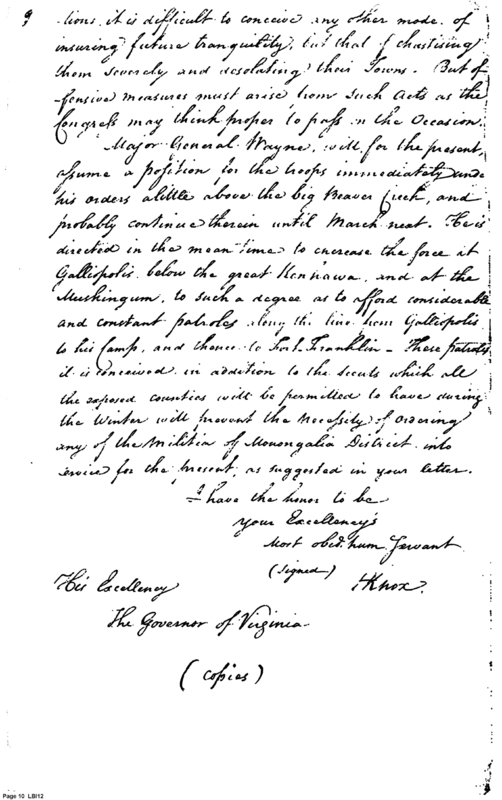 9
-tions, it is difficult to conceive any other mode of
insuring future tranquility, but that of chastising
them severely and desolating their Towns. But of-
-fensive measures must arise from such Acts as the
Congress may think proper to pass on the Occasion.
Major General Wayne, will for the present,
assume a position for the troops immediately under
his orders a little above the big Beaver Creek, and
probably continue therein until March next. He is
directed in the mean time to encrease the force at
Galliopolis, below the great Kennawa, and at the
Muskingum, to such a degree as to afford considerable
and constant patroles along the line from Galliopolis
to his Camp, and thence to Fort Franklin - These patroles,
it is conceived in addition to the scouts which all
the exposed counties will be permitted to have during
the Winter will prevent the necessity of ordering
any of the Militia of Monongalia District into
service for the present, as suggested in your letter.
I have the honor to be
your Excellency's
Most obed. hum. Servant
(signed)
HKnox.
His Excellency
The Governor of Virginia
(copies)
Page 10 LBI12